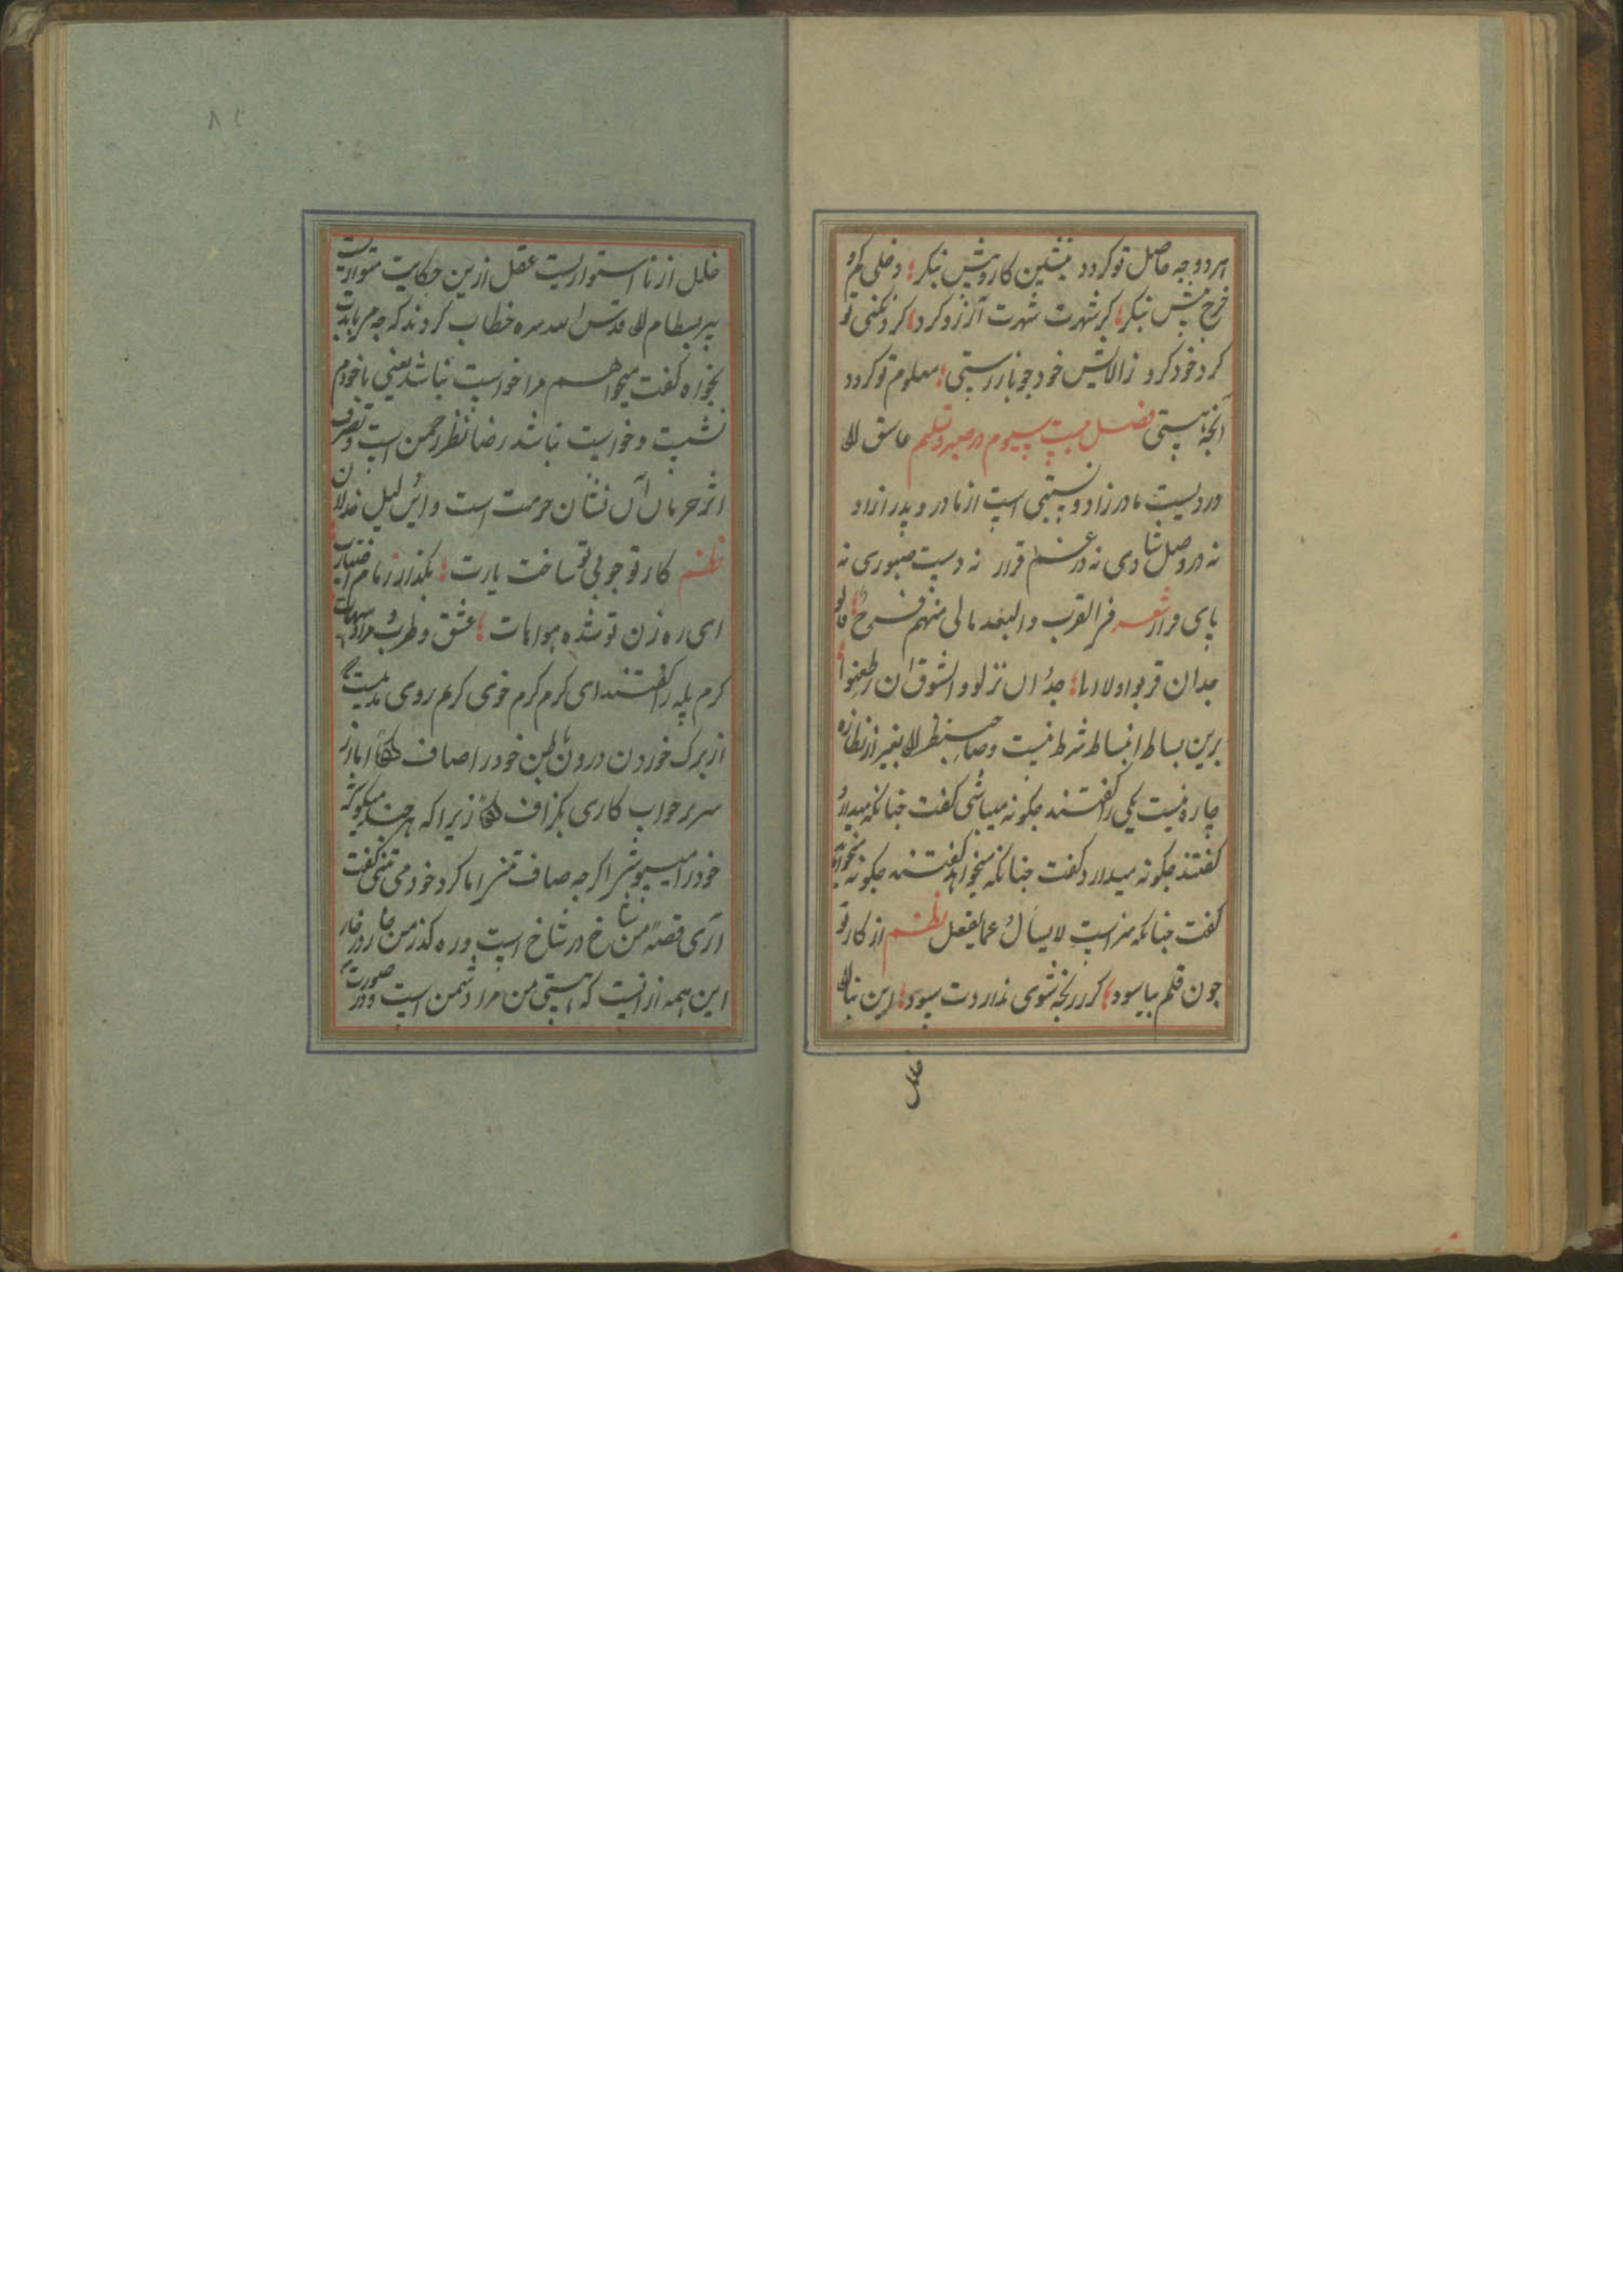 هر دو جه حاصل تو کردد بنشین کار و بیش نبکر؛ دخلی کم و
خرج بیش نبکر؛ کر شهرت شهرت آرزو کرد؛ کرد نکنی تو
کرد خود کرد ز الایش خود جو باز رستی؛ معلوم تو کردد
آنجه هستی فصل بیست سیوم در صبر و تسلیم عاشق را
دردیست مادرزاد و نسبتی است از مادر و پدر ازاد
نه در وصل شادی نه در غم قرار نه دست صبوری نه
پای فرار شعر فر القرب والبعد مالی منهم فرح؛ فا لو
بدان قربوا ولا ربا؛ جدا ان نزلوا و الشوق ان رظعنوا؛
برین بساط انبساط شرط نیست و صاحب نظر را بغیر از نظاره
چاره نیست یکی را کفتند جکونه میباشی کفت جنانکه میدارد
کفتند جکونه میدارد کفت جنانکه میخواهد کفتند جکونه میخواهد
کفت جنانکه سزاست لایسال عما یفعل نظم از کار تو
جون قلم بیاسود؛ کر رنجه شوی نداردت سود؛ این بنا را
خلل
خلل از نا استواریست عقل ازین حکایت متواریست
پیر بسطام را قدس الله سره خطاب کردند که جه می بایدت
بخواه کفت میخواهم مرا خواست نباشد یعنی با خودم
نشست و خواست نباشد رضا نظر رحمن است و تصرف
اثر حرمان آن نشان حرمت است و این لیل خذلان
نظم کار تو جو بی تو ساخت یارت؛ بکذار زمام اختیارت
ای ره زن تو شده هوامات؛ عشق و طرب و مراد هیهات
کرم پیله را کفتند ای کرم کرم خوی کرم روی مدتیست
از برک خوردن درون بطن خود را صاف کن اما از
سر خواب کاری بکزاف کن زیرا که هر جند میکوئی
خود را میپوشی اکر جه صاف تنی اما کرد خود می تنی کفت
آری قصه من شاخ در شاخ است و ره کذر من خار در خار
این همه از انست که هستی من مرا دشمن است و در صورت